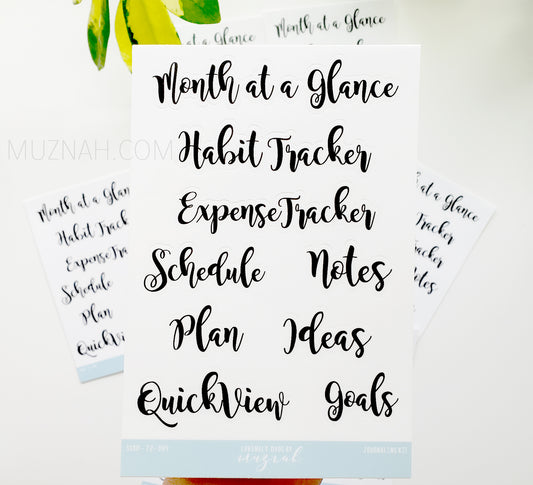 Month at a Glance
Habit Tracker
ExpenseTracker
Schedule Notes
Plan Ideas
QuickView Goals
LOVINGLY MADE BY
muznah
JOURNALING KIT
MUZNAH.COM
at a Glance
Month at a Glance
Month at a Glance
Habit Tracker
ExpenseTra
Schedule
Plan
QuickVi
at a Glance
Tracker
racker
Notes